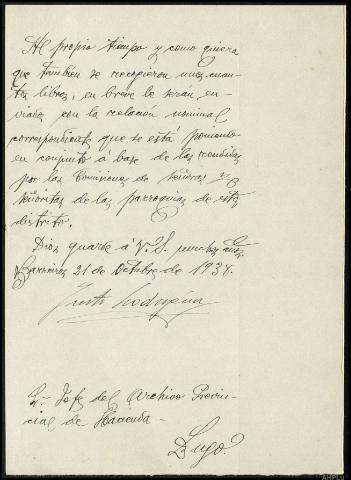 Al propio tiempo y como quiera
que tambien se recogieron unos cuan-
tos libros, en breve le serán en-
viados con la relación nominal
correspondiente que se está poniendo
en conjunto á base de las rendidas
por las Comisiones de señoras y
señoritas de las parroquias de este
distrito.
Dios guarde á V. S. muchos años.
Barreiros 21 de Octubre de 1938.
Sr. Jefe del Archivo Provin-
cial de Hacienda-
Lugo.
AHPLU